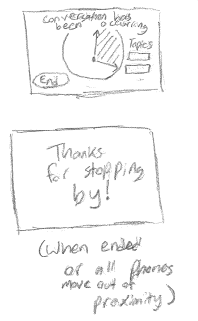 conversation has
been occurring
Topics
End
Thanks
for stopping
by!
(when ended
or all phones
move out of
proximity)